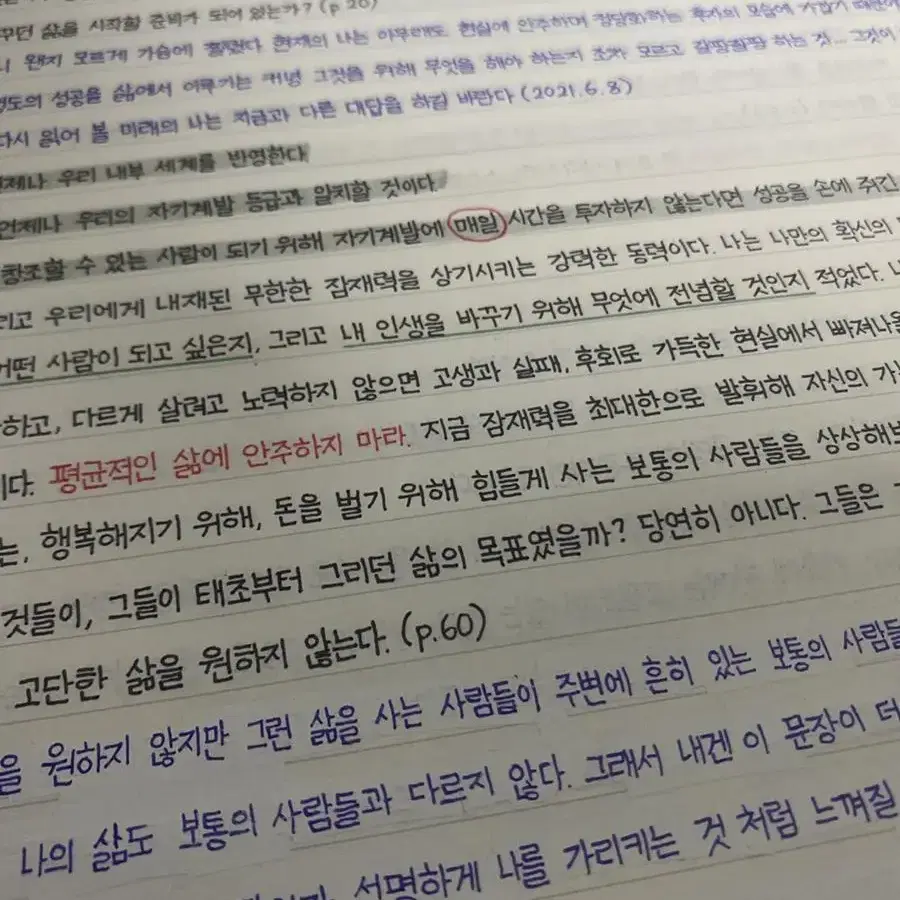 꾸던 삶을 시작할 준비가 되어 있는가? (p 20)
왠지 모르게 가슴에 현재의 나는 아무래도 현실에 안주하며 정당화하는 후자의 모습에 가깝기 때문에
정도의 성공을 삶에서 이루기는 커녕 그것을 위해 무엇을 해야 하는지 조차 모르고 갈팡질팡 하는 것... 그것이
다시 읽어 볼 미래의 나는 지금과 다른 대답을 하길 바란다 (2021.6.8)
언제나 우리 내부 세계를 반영한다
언제나 우리의 자기계발 등급과 일치할 것이다.
창조할 수 있는 사람이 되기 위해 자기계발에 매일 시간을 투자하지 않는다면 성공을 손에 쥐긴
그리고 우리에게 내재된 무한한 잠재력을 상기시키는 강력한 동력이다. 나는 나만의 확신의
어떤 사람이 되고 싶은지, 그리고 내 인생을 바꾸기 위해 무엇에 전념할 것인지 적었다.
하고, 다르게 살려고 노력하지 않으면 고생과 실패, 후회로 가득한 현실에서 빠져나올
이다. 평균적인 삶에 안주하지 마라. 지금 잠재력을 최대한으로 발휘해 자신의
는, 행복해지기 위해, 돈을 벌기 위해 힘들게 사는 보통의 사람들을 상상해보
것들이, 그들이 태초부터 그리던 삶의 목표였을까? 당연히 아니다. 그들은
고단한 삶을 원하지 않는다. (p.60)
을 원하지 않지만 그런 삶을 사는 사람들이 주변에 흔히 있는 보통의 사람들
나의 삶도 보통의 사람들과 다르지 않다. 그래서 내겐 이 문장이 더
서명하게 나를 가리키는 것 처럼 느껴질